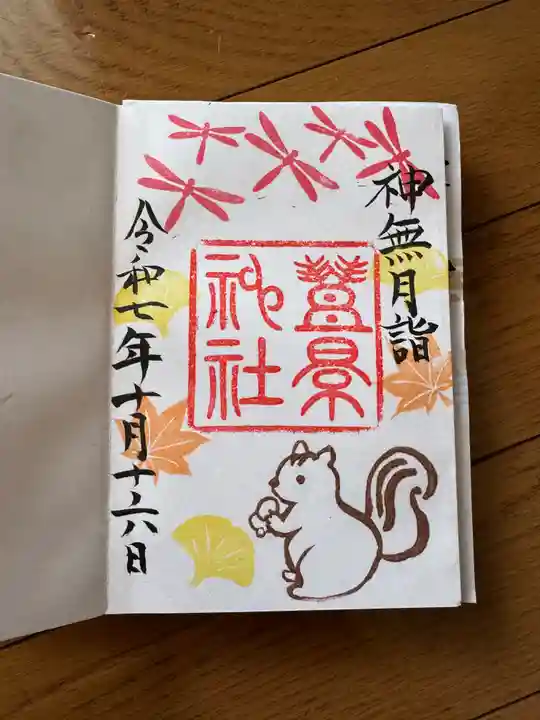 神無月詣
蓋景
神社
令和七年十月十六日